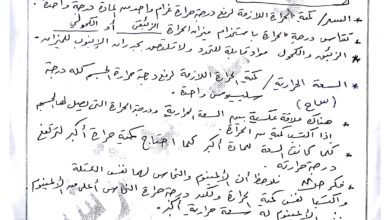 * السعر / كمية الحرارة اللازمة لرفع درجة حرارة غرام واحد من المادة درجة واحدة.
* تقاس درجة الحرارة باستخدام ميزان الحرارة الزئبقي أو الكحولي
* الزئبق والكحول مواد قابلة للتمدد ولا تلتصق بجدران الأنبوب للميزان.
* السعة الحرارية / كمية الحرارة اللازمة لرفع درجة حرارة الجسم كله درجة
سليسيوس واحدة.
* هناك علاقة عكسية بين السعة الحرارية ودرجة الحرارة التي يصل لها الجسم
إذا اكتسب كمية من الحرارة
* كلما كانت السعة لمادة أكبر كلما احتاج كمية حرارة أكبر لترتفع
درجة حرارته
* فكر نلاحظ أن الألمنيوم والنحاس لهما نفس الكتلة
واكتسبا نفس كمية الحرارة ولكن درجة حرارة النحاس أعلى من الألمنيوم
الألمنيوم له سعة حرارية أكبر.